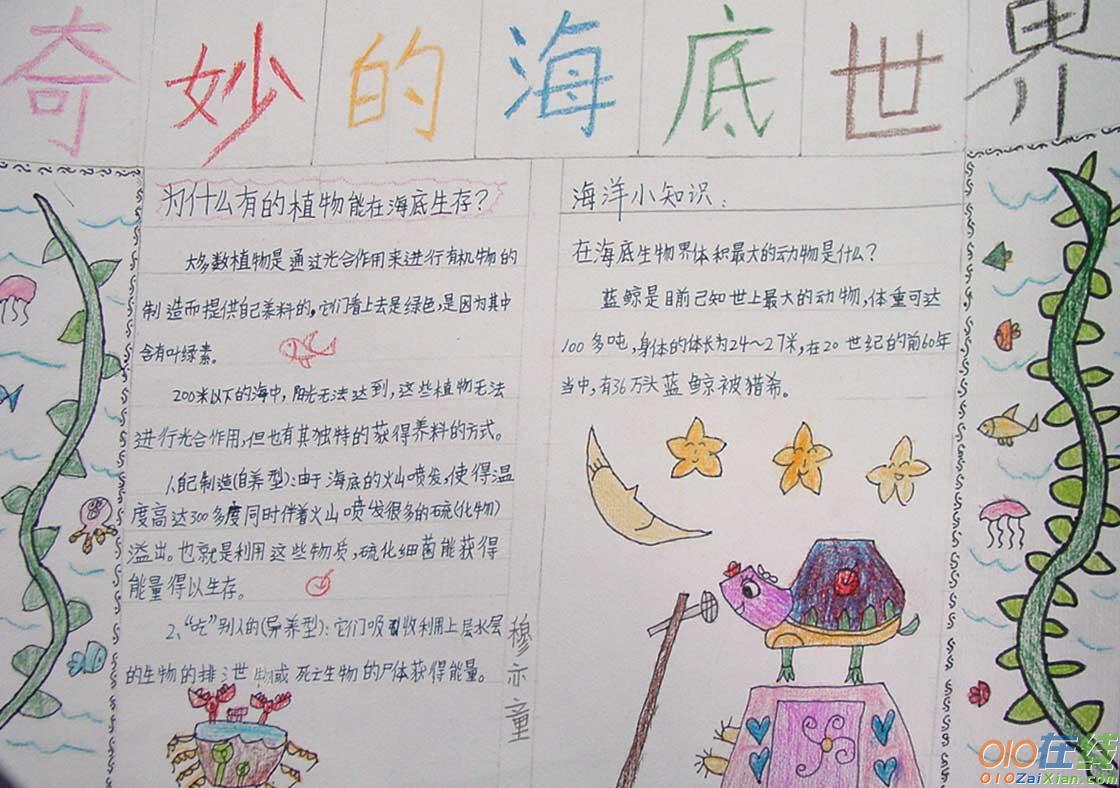 奇妙的海底世界
为什么有的植物能在海底生存？
大多数植物是通过光合作用来进行有机物的
制造而提供自己养料的。它们看上去是绿色，是因为其中
含有叶绿素。
200米以下的海中，阳光无法达到，这些植物无法
进行光合作用，但也有其独特的获得养料的方式。
1、自配制造(自养型)：由于海底的火山喷发，使得温
度高达300多度同时伴着火山喷发很多的硫(化物)
溢出。也就是利用这些物质，硫化细菌能获得
能量得以生存。
2、“吃”别人的(异养型)：它们吸收利用上层水层
的生物的排泄物或死亡生物的尸体获得能量。
穆亦童
海洋小知识：
在海底生物界体积最大的动物是什么？
蓝鲸是目前已知世上最大的动物，体重可达
100多吨，身体的体长为24～27米，在20世纪的前60年
当中，有36万头蓝鲸被猎希。
010在线
010ZaiXian.com